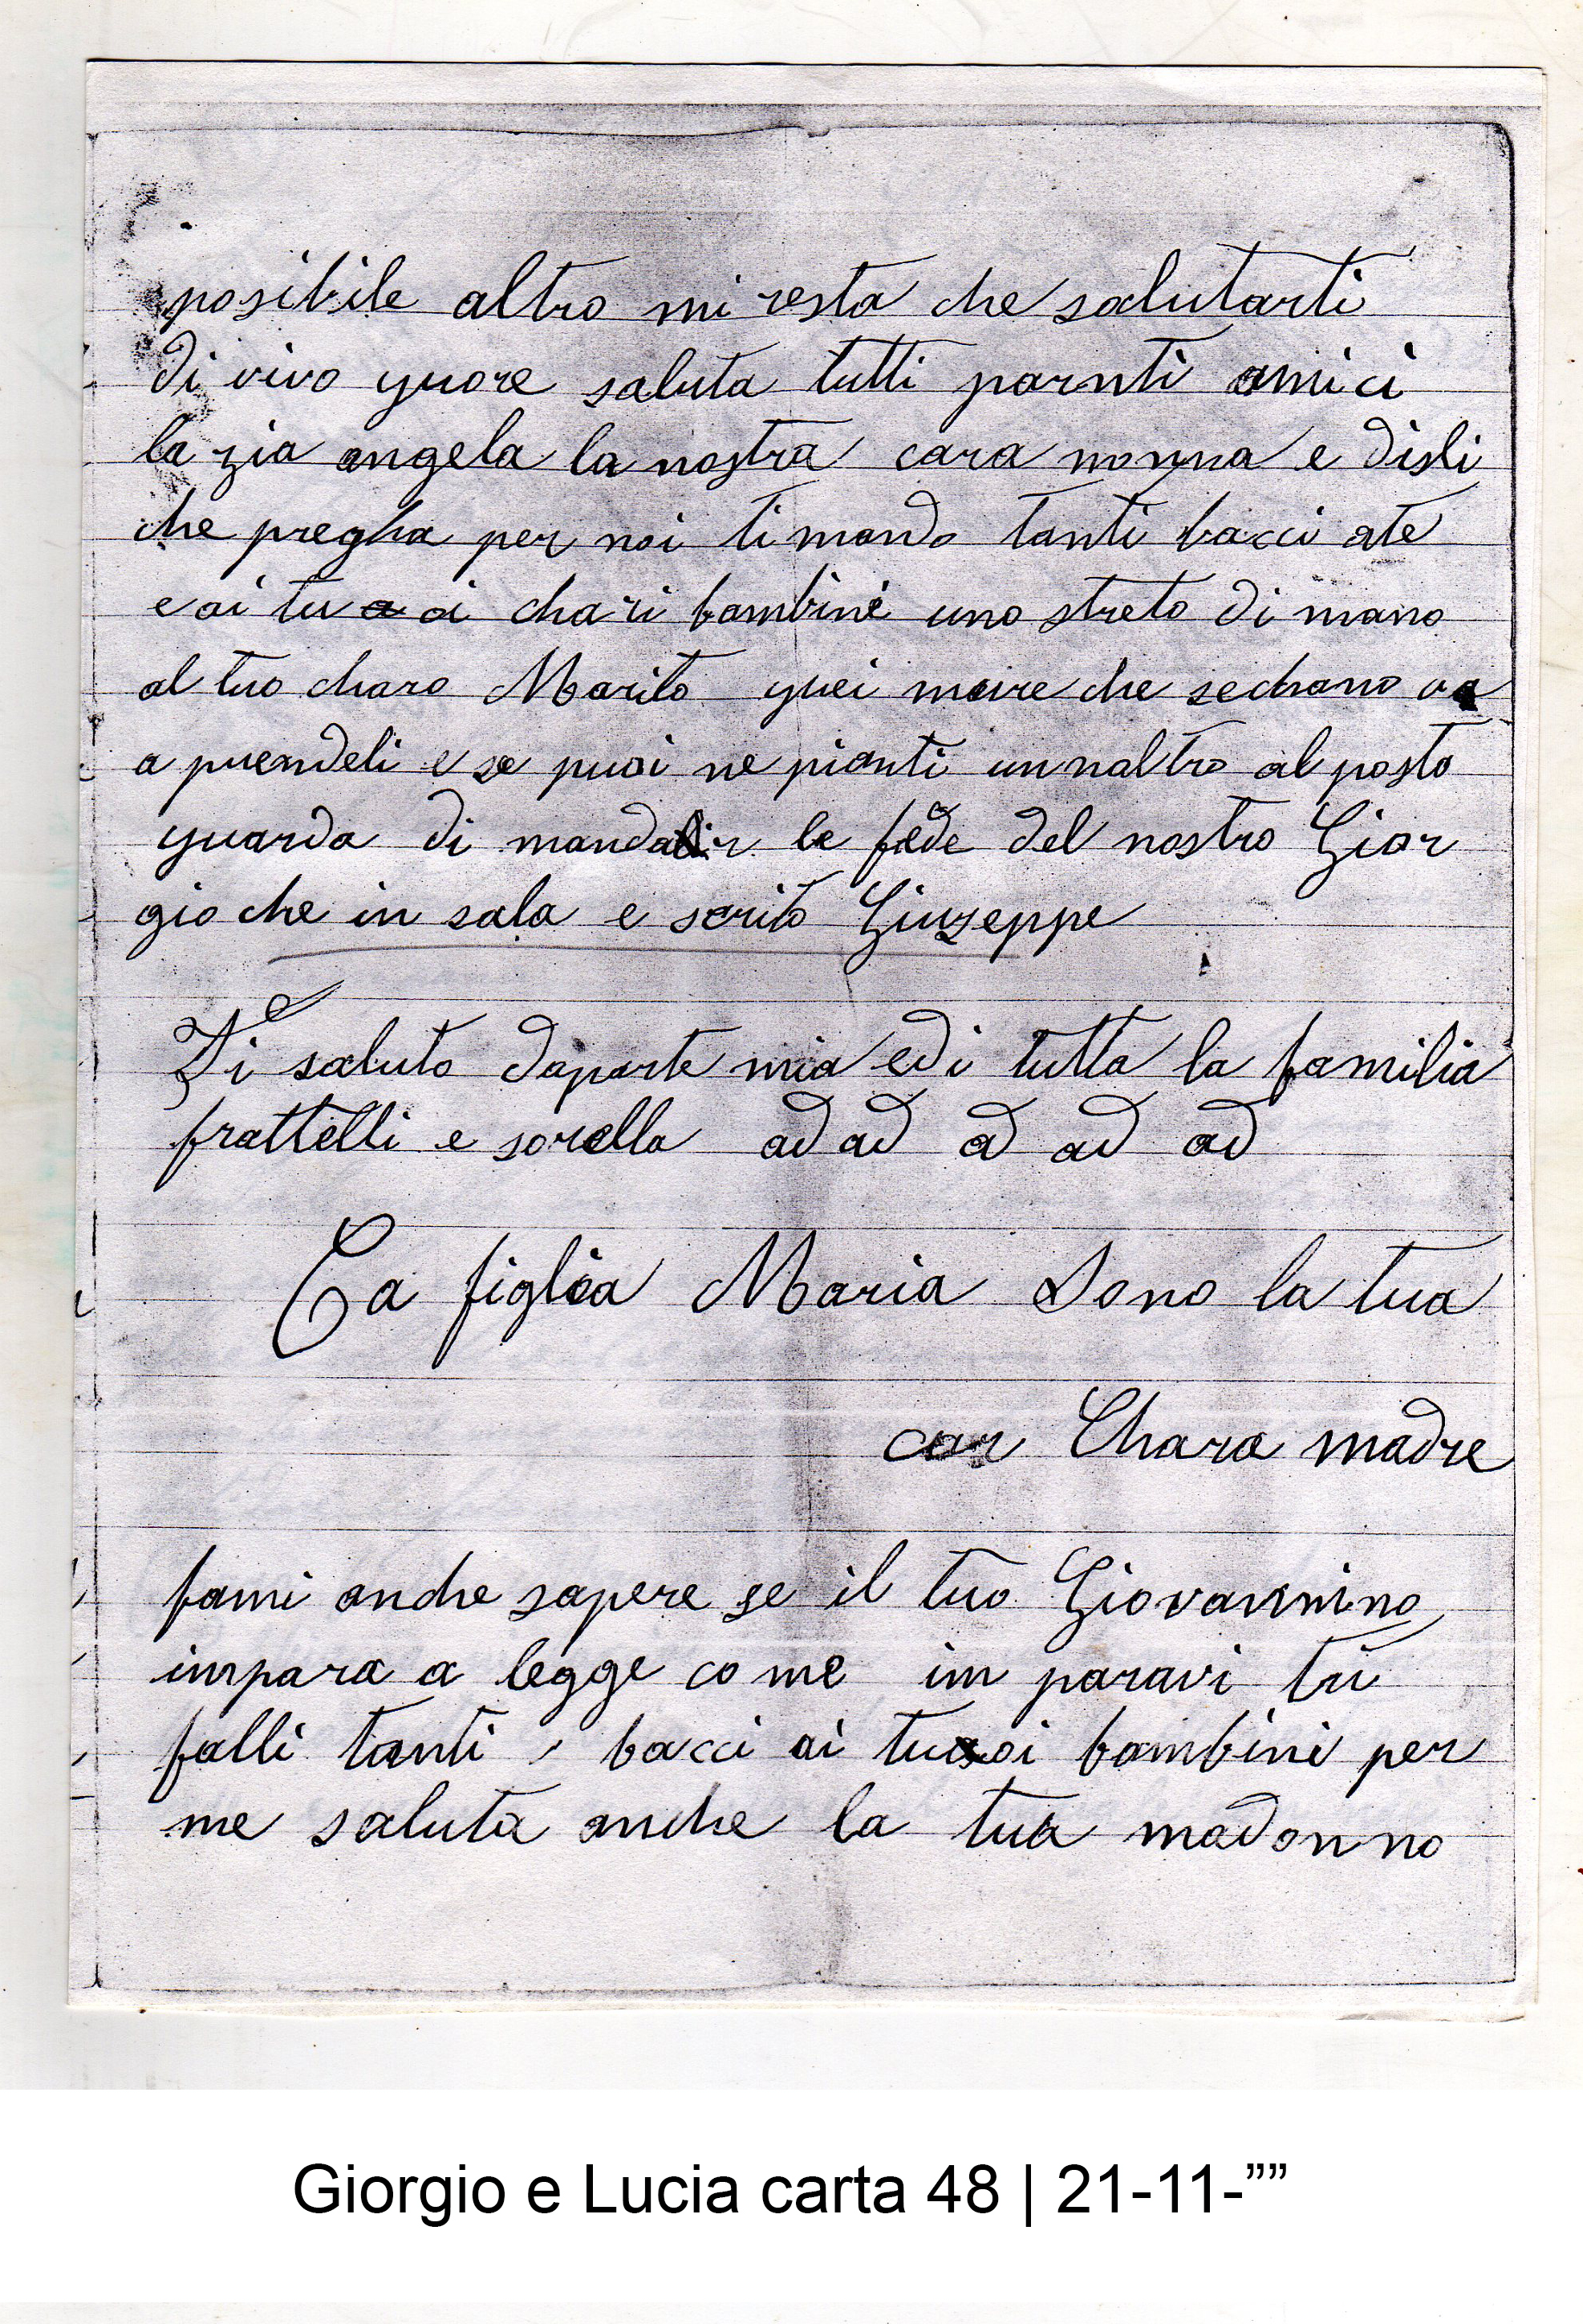 posibile altro mi resta che salutarti
di vivo quore saluta tutti parnti amici
la zia angela la nostra cara nonna e disli
che pregha per noi ti mando tanti bacci ate
e ai tu a oi chari bambini uno streto di mano
al tuo charo Marito quei moire che sechano va
a prendeli e se puoi ne pianti un naltro al posto
guarda di mandar le fede del nostro Gior
gio che in sala e scrito Giuzeppe
Ti saluto daparte mia edi tutta la familia
frattelli e sorella ad ad ad ad ad
Ca figlia Maria Sono la tua
car Chara madre
fami anche sapere se il tuo Giovannino
impara a legge come im paravi tu
falli tanti bacci ai tuoi bambini per
me saluta anche la tua madonno
Giorgio e Lucia carta 48 | 21-11-””